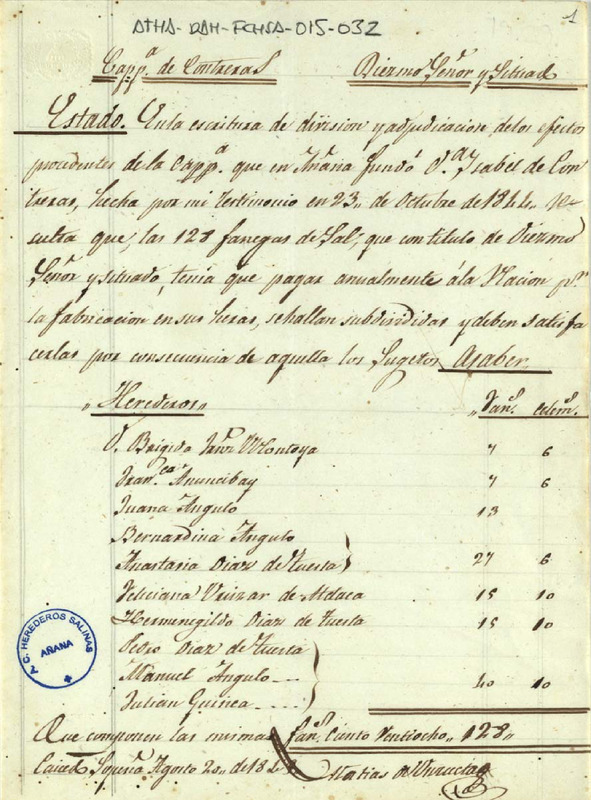 ATHA-DAH-FCHSA-015-032
1
Capp.ª de Contreras Diezmo Señor y Situad
Estado. En la escritura de division y adjudicacion de los efectos
procedentes de la Capp.ª que en Añana fundó D.ª Ysabel de Con
treras, hecha por mi testimonio en 23,, de Octubre de 1844 re
sulta que, las 128 fanegas de Sal, que con titulo de Diezmo
Señor y situado, tenia que pagar anualmente á la Nacion p.r
la fabricacion en sus heras, se hallan subdivididas y deben satisfa
cerlas por consecuencia de aquella los Sugetos Asaber.
,,Herederos,, ,,Fan.s celem.s
D. Brigida Montoya 7 6
Fran.ca Anuncibay 7 6
Juana Angulo 13
Bernardina Angulo
Anastasia Diaz de Tuesta 27 6
Feliciana de Aldaca 15 10
Hermenegildo Diaz de Tuesta 15 10
Pedro Diaz de Tuesta
Manuel Angulo
Julian Guinea 40 10
Que componen las mismas fan.s Ciento Veintiocho,, 128,,
Agosto 20,, de Matias
C. HEREDEROS SALINAS
AÑANA